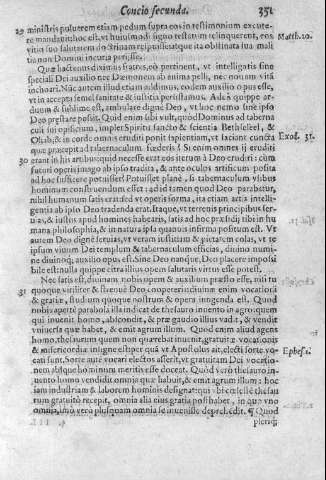 Concio secunda. 351
29 ministris puluerem etiam pedum supra eos in testimonium excute-
re mandauit: hoc est, vt huiusmodi signo testatum relinquerent, eos Matth. 10.
vitijs suo salutarem doctrinam respuisse: atque ita obstinata sua mali
tia non Domini incuria perijsse.
Quæ hactenus diximus fratres, eò pertinent, vt intelligatis sine
speciali Dei auxilio nec Dæmonem ab animo pelli, nec nouam vitã
inchoari. Nũc autem illud etiam addimus, eodem auxilio opus esse,
vt in accepta semel sanitate & iustitia persistamus. Adeò quippe ar-
duum & sublime est, ambulare digne Deo, vt hoc nemo sine ipso
Deo præstare possit. Quid enim sibi vult, quòd Dominus ad taberna
culi sui opificium, implet Spiritu sancto & scientia Beseleel, &
Oliab, & in corde omnis eruditi ponit sapientiam, vt faciant cuncta Exod. 31.
quæ præcepit ad tabernaculum fœderis? Si enim omnes ij eruditi
30 erant in his artibus: quid necesse erat eos iterum à Deo erudiri: cùm
futuri operis imago ab ipso tradita, & ante oculos artificum posita
ad hoc sufficere potuisset? Potuisset planè, si tabernaculum vsibus
hominum construendum esset: ad id tamen quod Deo parabatur,
nihil humanum satis erat: sed vt operis forma, ita etiam artis intelli-
gentia ab ipso Deo tradenda erat. Itaque, vt terrenis principibus ser-
uias, & iustus apud homines habearis, satis ad hoc præsidij tibi in hu
mana philosophia, & in natura ipsa quamuis infirma positum est. Vt
autem Deo dignè seruias, vt veram iustitiam & pietatem colas, vt te
ipsum viuum Dei templum & tabernaculum efficias, diuino numi-
ne diuinoq; auxilio opus est. Sine Deo nanque, Deo placere impossi
bile est: nulla quippe citra illius opem salutaris virtus esse potest.
Nec satis est, diuinam nobis opem & auxilium præsto esse, nisi tu
31 quoque viriliter & strenuè Deo coopereris: diuinæ enim vocationi
& gratiæ, studium quoque nostrum & opera iungenda est. Quod
nobis apertè parabola illa indicat de thesauro inuento in agro: quem
qui inuenit homo, abscondit, & præ gaudio illius vadit, & vendit
vniuersa quæ habet, & emit agrum illum. Quòd enim aliud agens
homo, thesaurum quem non quærebat inuenit, gratuitæ vocationis
& misericordiæ insigne est: per quã vt Apostolus ait, electi sorte vo-
cati sunt. Sorte autẽ vocari electos asserit, vt gratuitam Dei vocatio- Ephes. 1.
nem absque hominum meritis esse doceat. Quòd verò thesauro in-
uento homo vendidit omnia quæ habuit, & emit agrum illum: hoc
iam industriam & laborem hominis designat: qui
rum gratuitò recepit, omnia alia eius gratia posthabet, in quo vno
omnia, imò verò plusquam omnia se inuenisse deprehendit. ¶ Quod